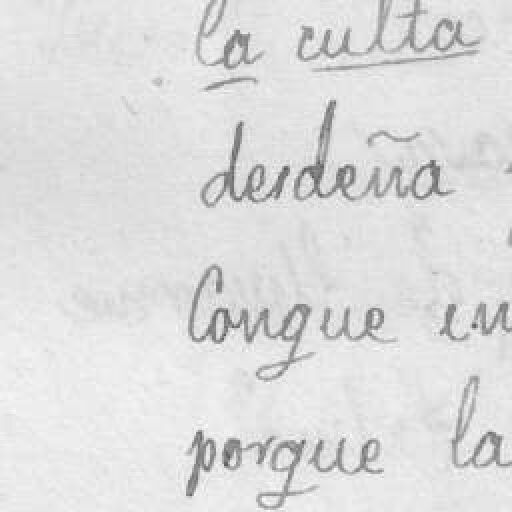 la culta
desdeña
Conque in
porque la